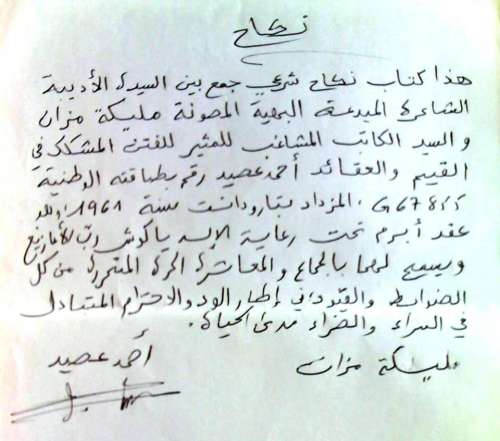 نكاح
هذا كتاب نكاح شرعي جمع بين السيدة الأديبة
الشاعرة المبدعة البهية المصونة مليكة مزان
و السيد الكاتب المشاغب المثير للفتن المشكك في
القيم والعقائد أحمد عصيد رقم بطاقته الوطنية
المزداد بتارودانت سنة 1961، وقد
عقد أبرم تحت رعاية الإله ياكوش رب الأمازيغ
ويسمح لهما بالجماع و المعاشرة الحرة المتحررة من كل
الضوابط والقيود في إطار الود والاحترام المتبادل
في السراء والضراء مدى الحياة.
أحمد عصيد
مليكة مزان